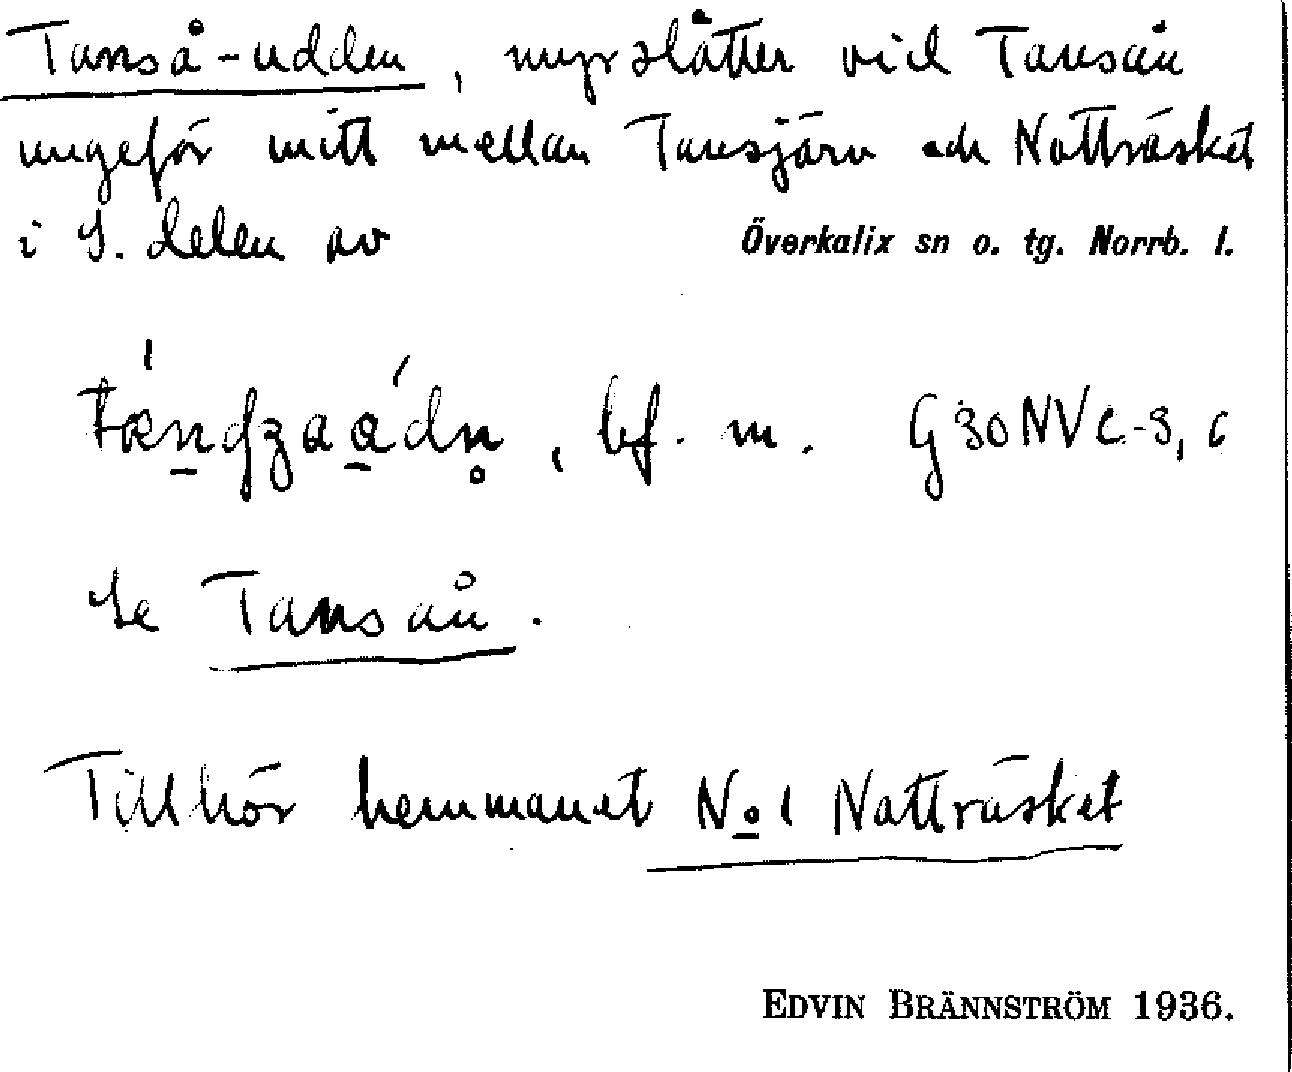 Tanså-udden, myrslåtter vid Tansån
ungefär mitt mellan Tansjärv och Nattträsket
i S. delen av Överkalix sn o. tg. Norrb. l.
bf. m. G30NVc-3, c
Se Tansån.
Tillhör hemmanet No 1 Nattträsket
EDVIN BRÄNNSTRÖM 1936.